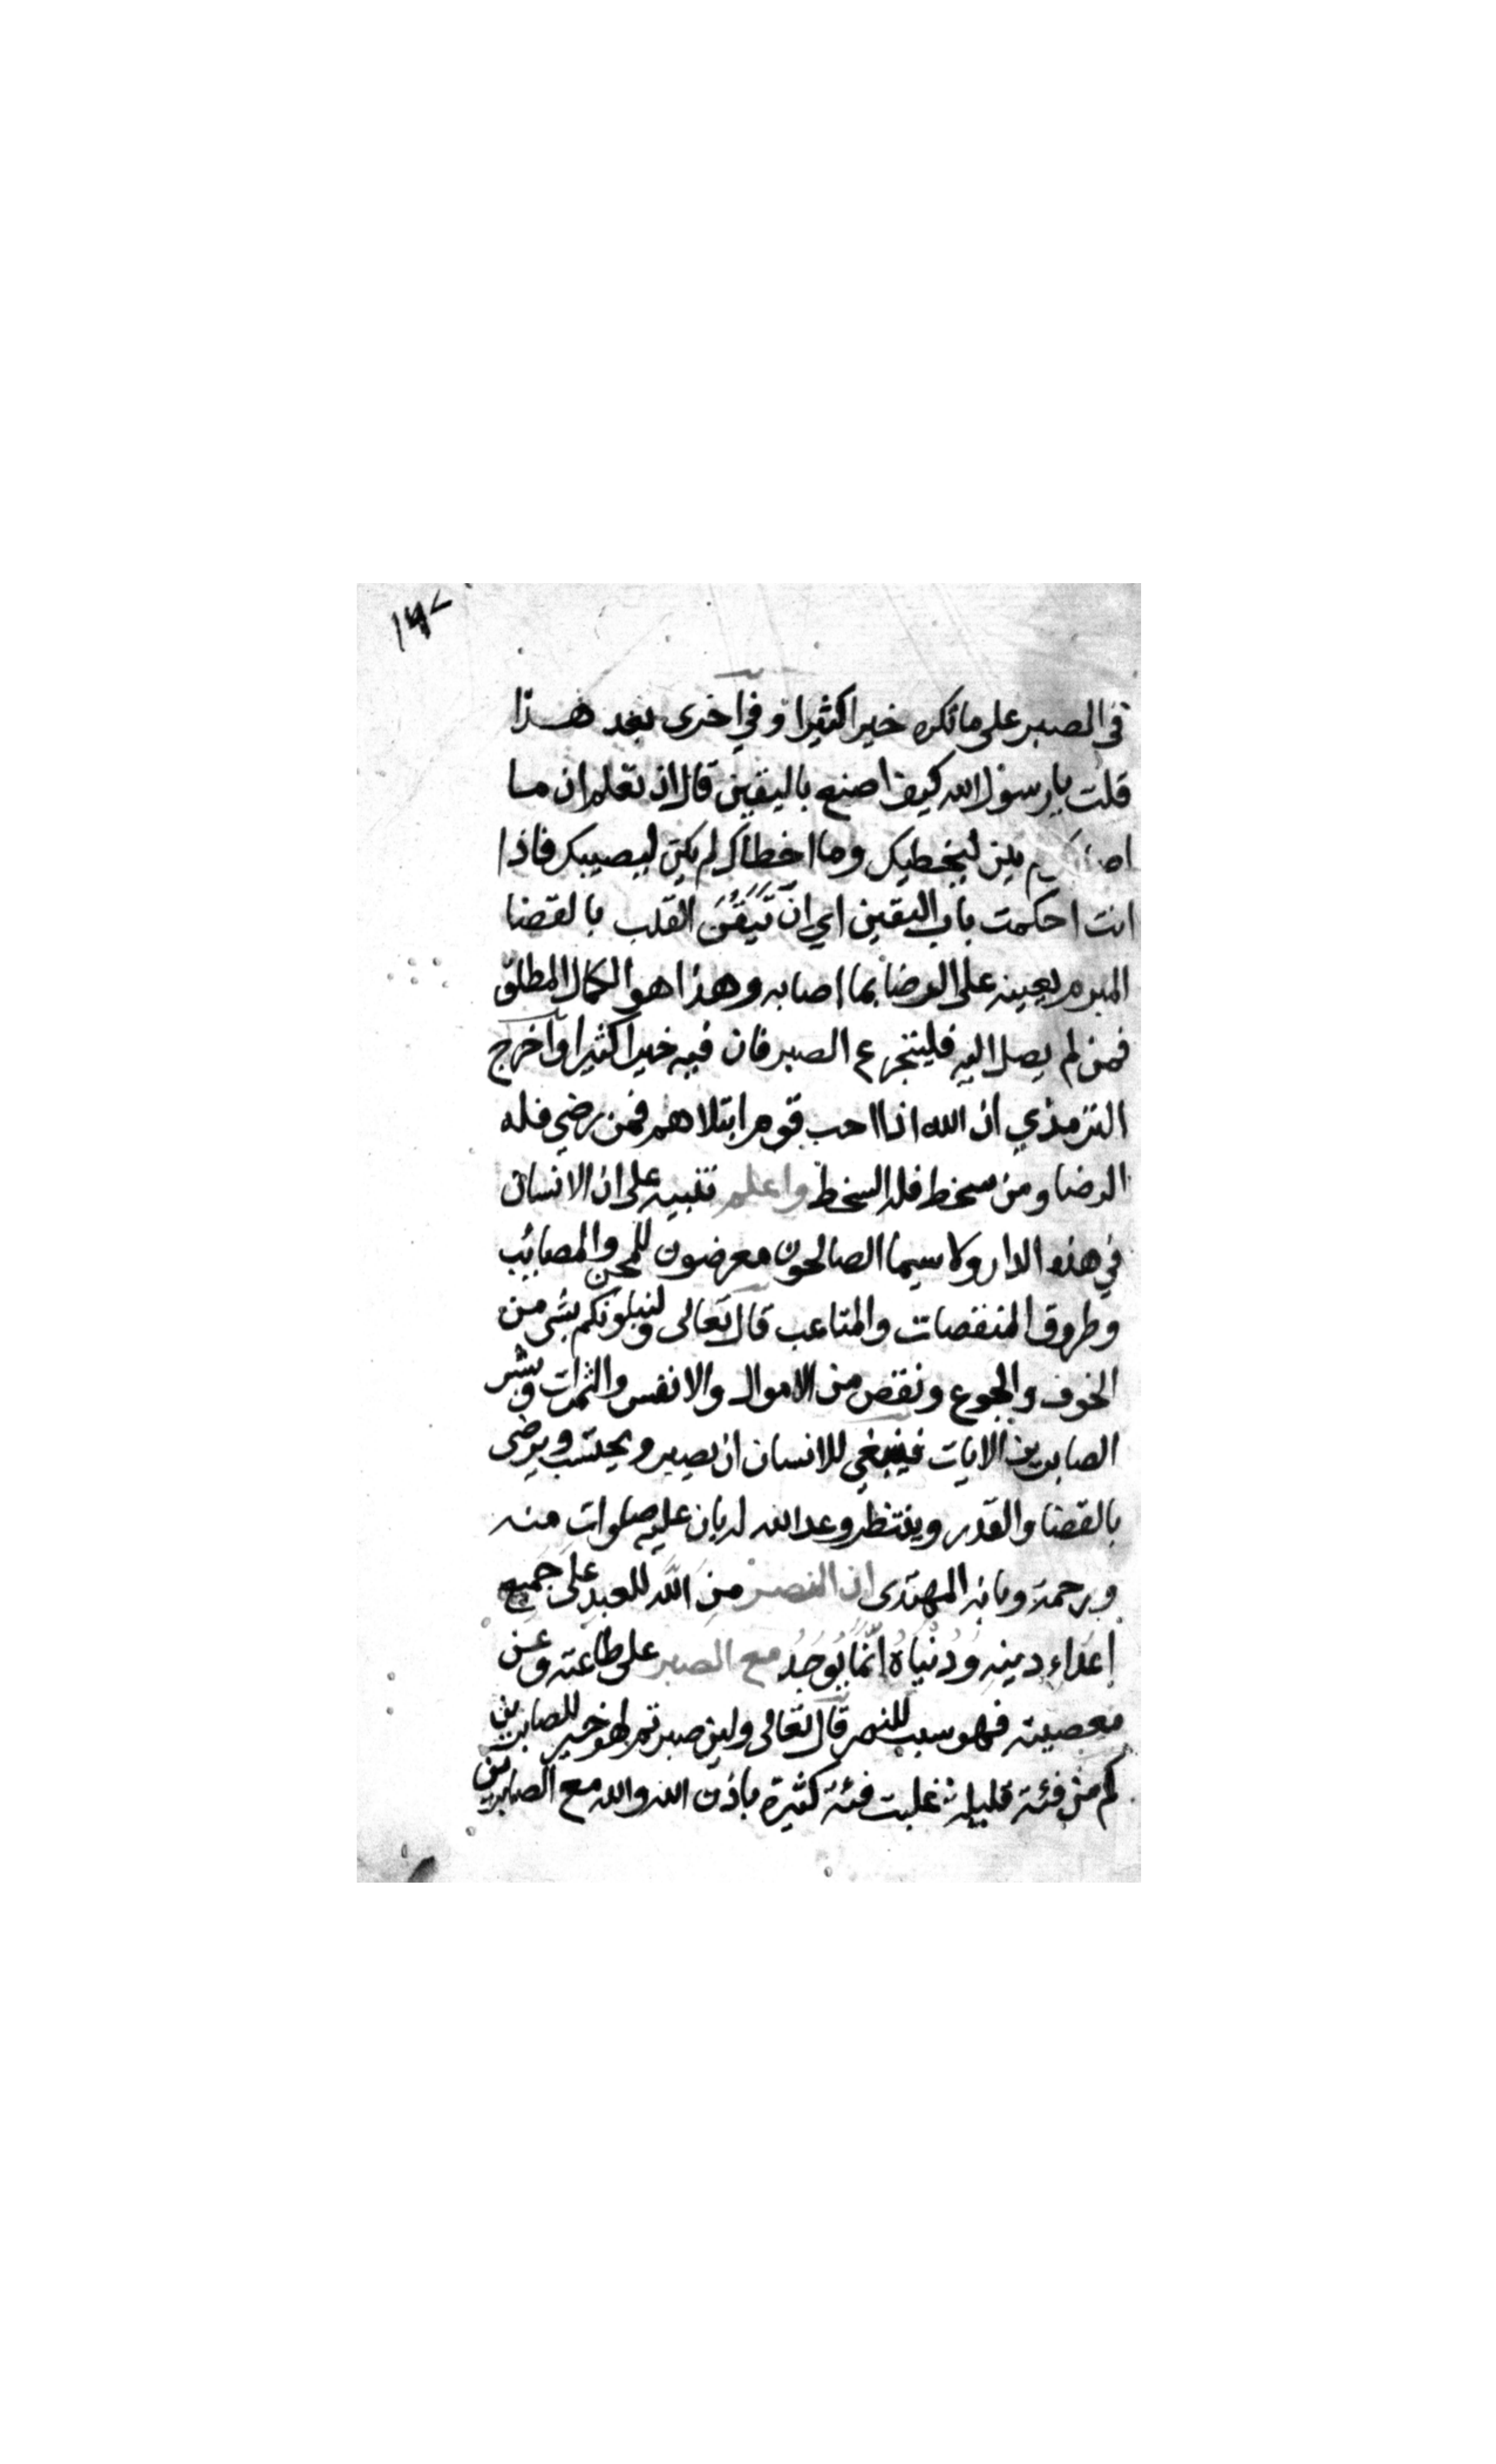 في الصبر على ما تكره خيرا كثيرا وفي اخرى بعد هذا
قلت يا رسول الله كيف اصنع باليقين قال ان تعلم ان ما
يكن ليخطيك وما اخطاك لم يكن ليصيبك فاذا
انت احكمت باب اليقين اي انّ تَيَقُّنَ القلب بالقضا
المبرم يعينه على الرضا بما اصابه وهذا هو الكمال المطلق
فمن لم يصل اليه فليتجرع الصبر فان فيه خيرا كثيرا واخرج
الترمذي ان الله اذا احب قوم ابتلاهم فمن رضي فله
الرضا ومن سخط فله السخط واعلم تنبيه على ان الانسان
في هذه الدار ولا سيما الصالحون معرضون للمحن والمصائب
وطروق المنغصات والمتاعب قال تعالى ولنبلونكم بشي من
الخوف والجوع ونقص من الاموال والانفس والثمرات وبشر
الصابرين الايات فينبغي للانسان ان يصبر ويحتسب ويرضى
بالقضا والقدر وينتظر وعد الله له بان عليه صلوات منه
ورحمة وبانه المهتدى ان النصر منَ اللّه للعبدِ علَى جَميع
اعدَاءِ دينِهِ وَدُنيَاهُ انّمَا يُوجَدُ مع الصبر على طاعته وعن
معصيته فهو سبب للنصر قال تعالى ولين صبرتم لهو خير للصابرين
كم من فئة قليلة غلبت فئة كثيرة باذن الله والله مع الصابرين